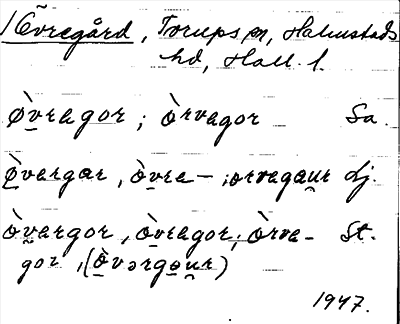 Övregård, Torups sn, Halmstads
hd, Hall. l.
øvragor; òrvagor Sa.
Òvargar, òvra–; orvagau̯r Lj.
òvargor, òvragor; òrva-
gor, (òvərgəu̯r) St.
1947.